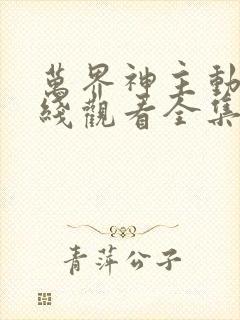 萬界神主動
綫觀看全集
青萍公子